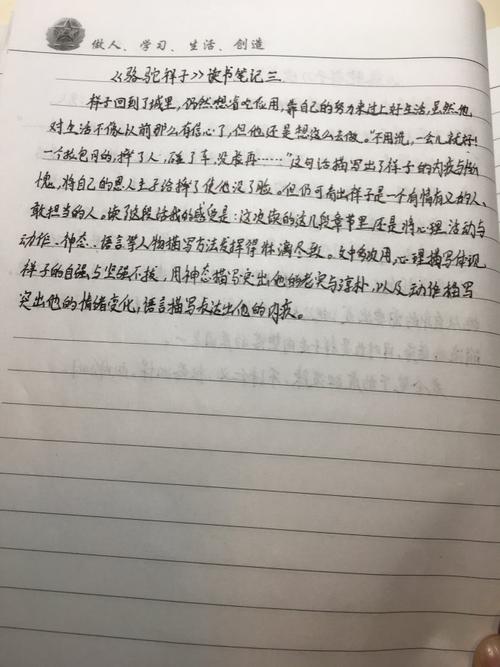 做人、学习、生活、创造
《骆驼祥子》读书笔记三
祥子回到了城里，仍然想省吃俭用，靠自己的努力来过上好生活，虽然他
对生活不像以前那么有信心了，但他还是想这么去做。“不用洗，一会儿就好！
一个拉包月的，摔了人，碰了车，没臭再……”这句话描写出了祥子的内疚与惭
愧，将自己的恩人主子给摔了使他没了脸。但仍可看出祥子是一个有情有义的人、
敢担当的人。读了这段话我的感受是：这次读的这几段章节里还是将心理活动与
动作、神态、语言等人物描写方法发挥得淋漓尽致。文中多次用心理描写体现
祥子的自强与坚强不拔，用神态描写突出他的老实与淳朴，以及动作描写
突出他的情绪变化，语言描写表达出他的内疚。